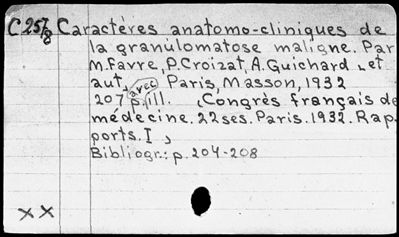 C 257/8 Caractères anatomo-cliniques de
la granulomatose maligne. Par
M. Favre, P. Croizat, A. Guichard et
aut. Paris, Masson, 1932
207 p. avec ill. (Congrès français de
médecine. 22 ses. Paris. 1932. Rap-
ports. I)
Bibliogr.: p. 204-208
XX